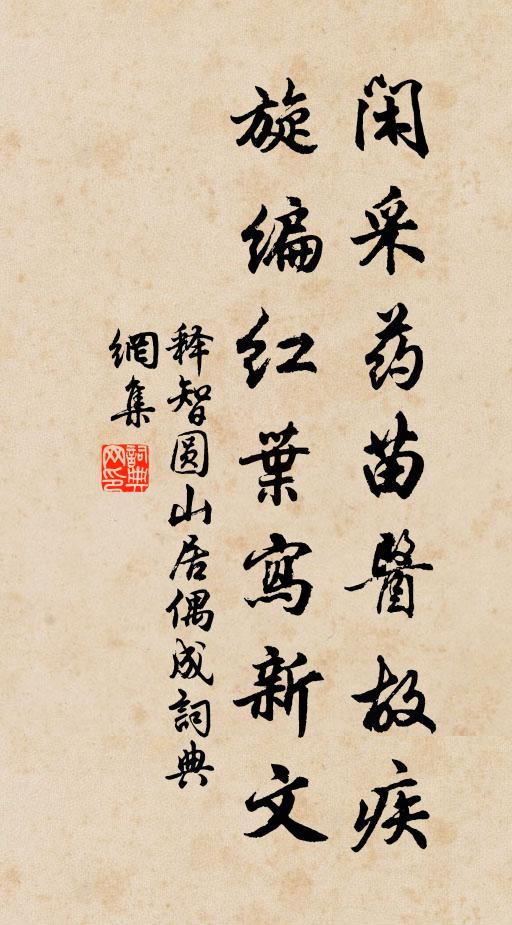 闲采药苗醫故疾
旋编红葉寫新文
释智圆山居偶成詞典
網集
詞典
网印